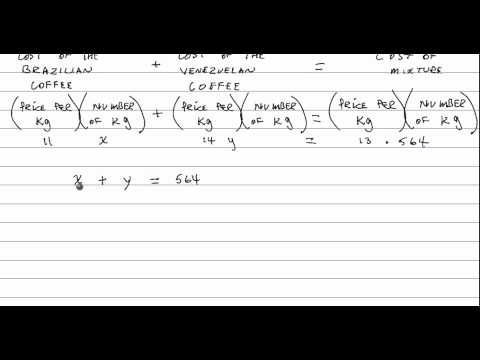 COST OF THE COST OF THE COST OF
BRAZILIAN + VENEZUELAN = MIXTURE
COFFEE COFFEE
(PRICE PER KG)(NUMBER OF KG) + (PRICE PER KG)(NUMBER OF KG) = (PRICE PER KG)(NUMBER OF KG)
11 x 14 y = 13 . 564
x + y = 564